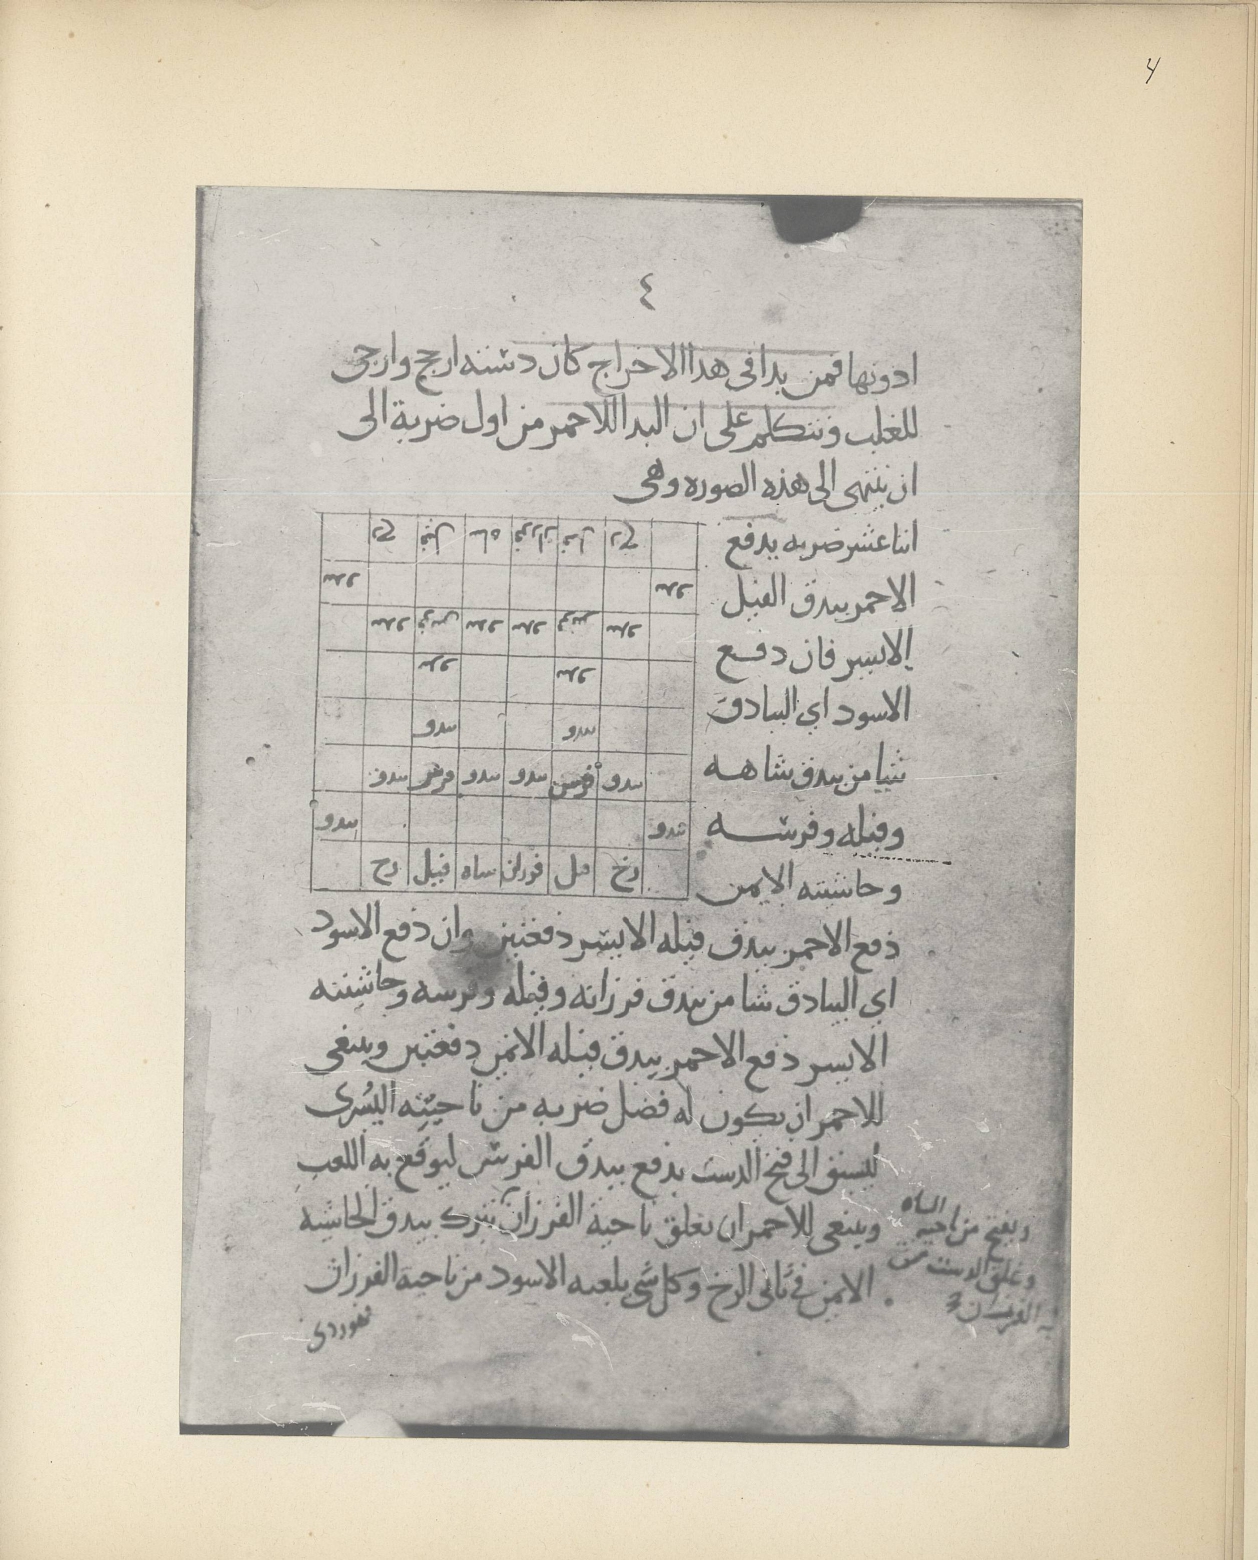 4
٤
ادونها فمن بدا فى هدا الاخراج كان دسته ارجح وارجى
للغلب ونتكلم على ان البدا للاحمر من اول ضربة الى
ان ينتهى الى هذه الصوره وهى
اثنا عشر ضربه يدفع
الاحمر بيدق الفيل
الايسر فان دفع
الاسود اي البيادق
شيا من بيدق شاهه
وفيله وفرسه
وحاشيته الايمن
رخ فيل شاه فرزان فيل رخ
بيدق بيدق
بيدق فرس بيدق بيدق فرس بيدق
بيدق بيدق
بيدق بيدق
بيدق فرس بيدق بيدق فرس بيدق
بيدق بيدق
رخ فيل فرزان شاه فيل رخ
دفع الاحمر بيدق فيله الايسر دفعتين وان دفع الاسود
اي البيادق شا من بيدق فرزانه وفيله وفرسه وحاشيته
الايسر دفع الاحمر بيدق فيله الايمن دفعتين وينبغى
للاحمر ان يكون له فضل ضربه من ناحيته اليسرى
ليسبق الى فتح الدست بدفع بيدق الفرس ليوقع به اللعب
وينبغى للاحمر ان يغلق ناحية الفرزان بترك بيدق الحاشيه
الايمن فى ثانى الرخ وكل شى يلعبه الاسود من ناحية الفرزان
ويفتح من ناحية الشاه
وغلق الدست من
الفرزان